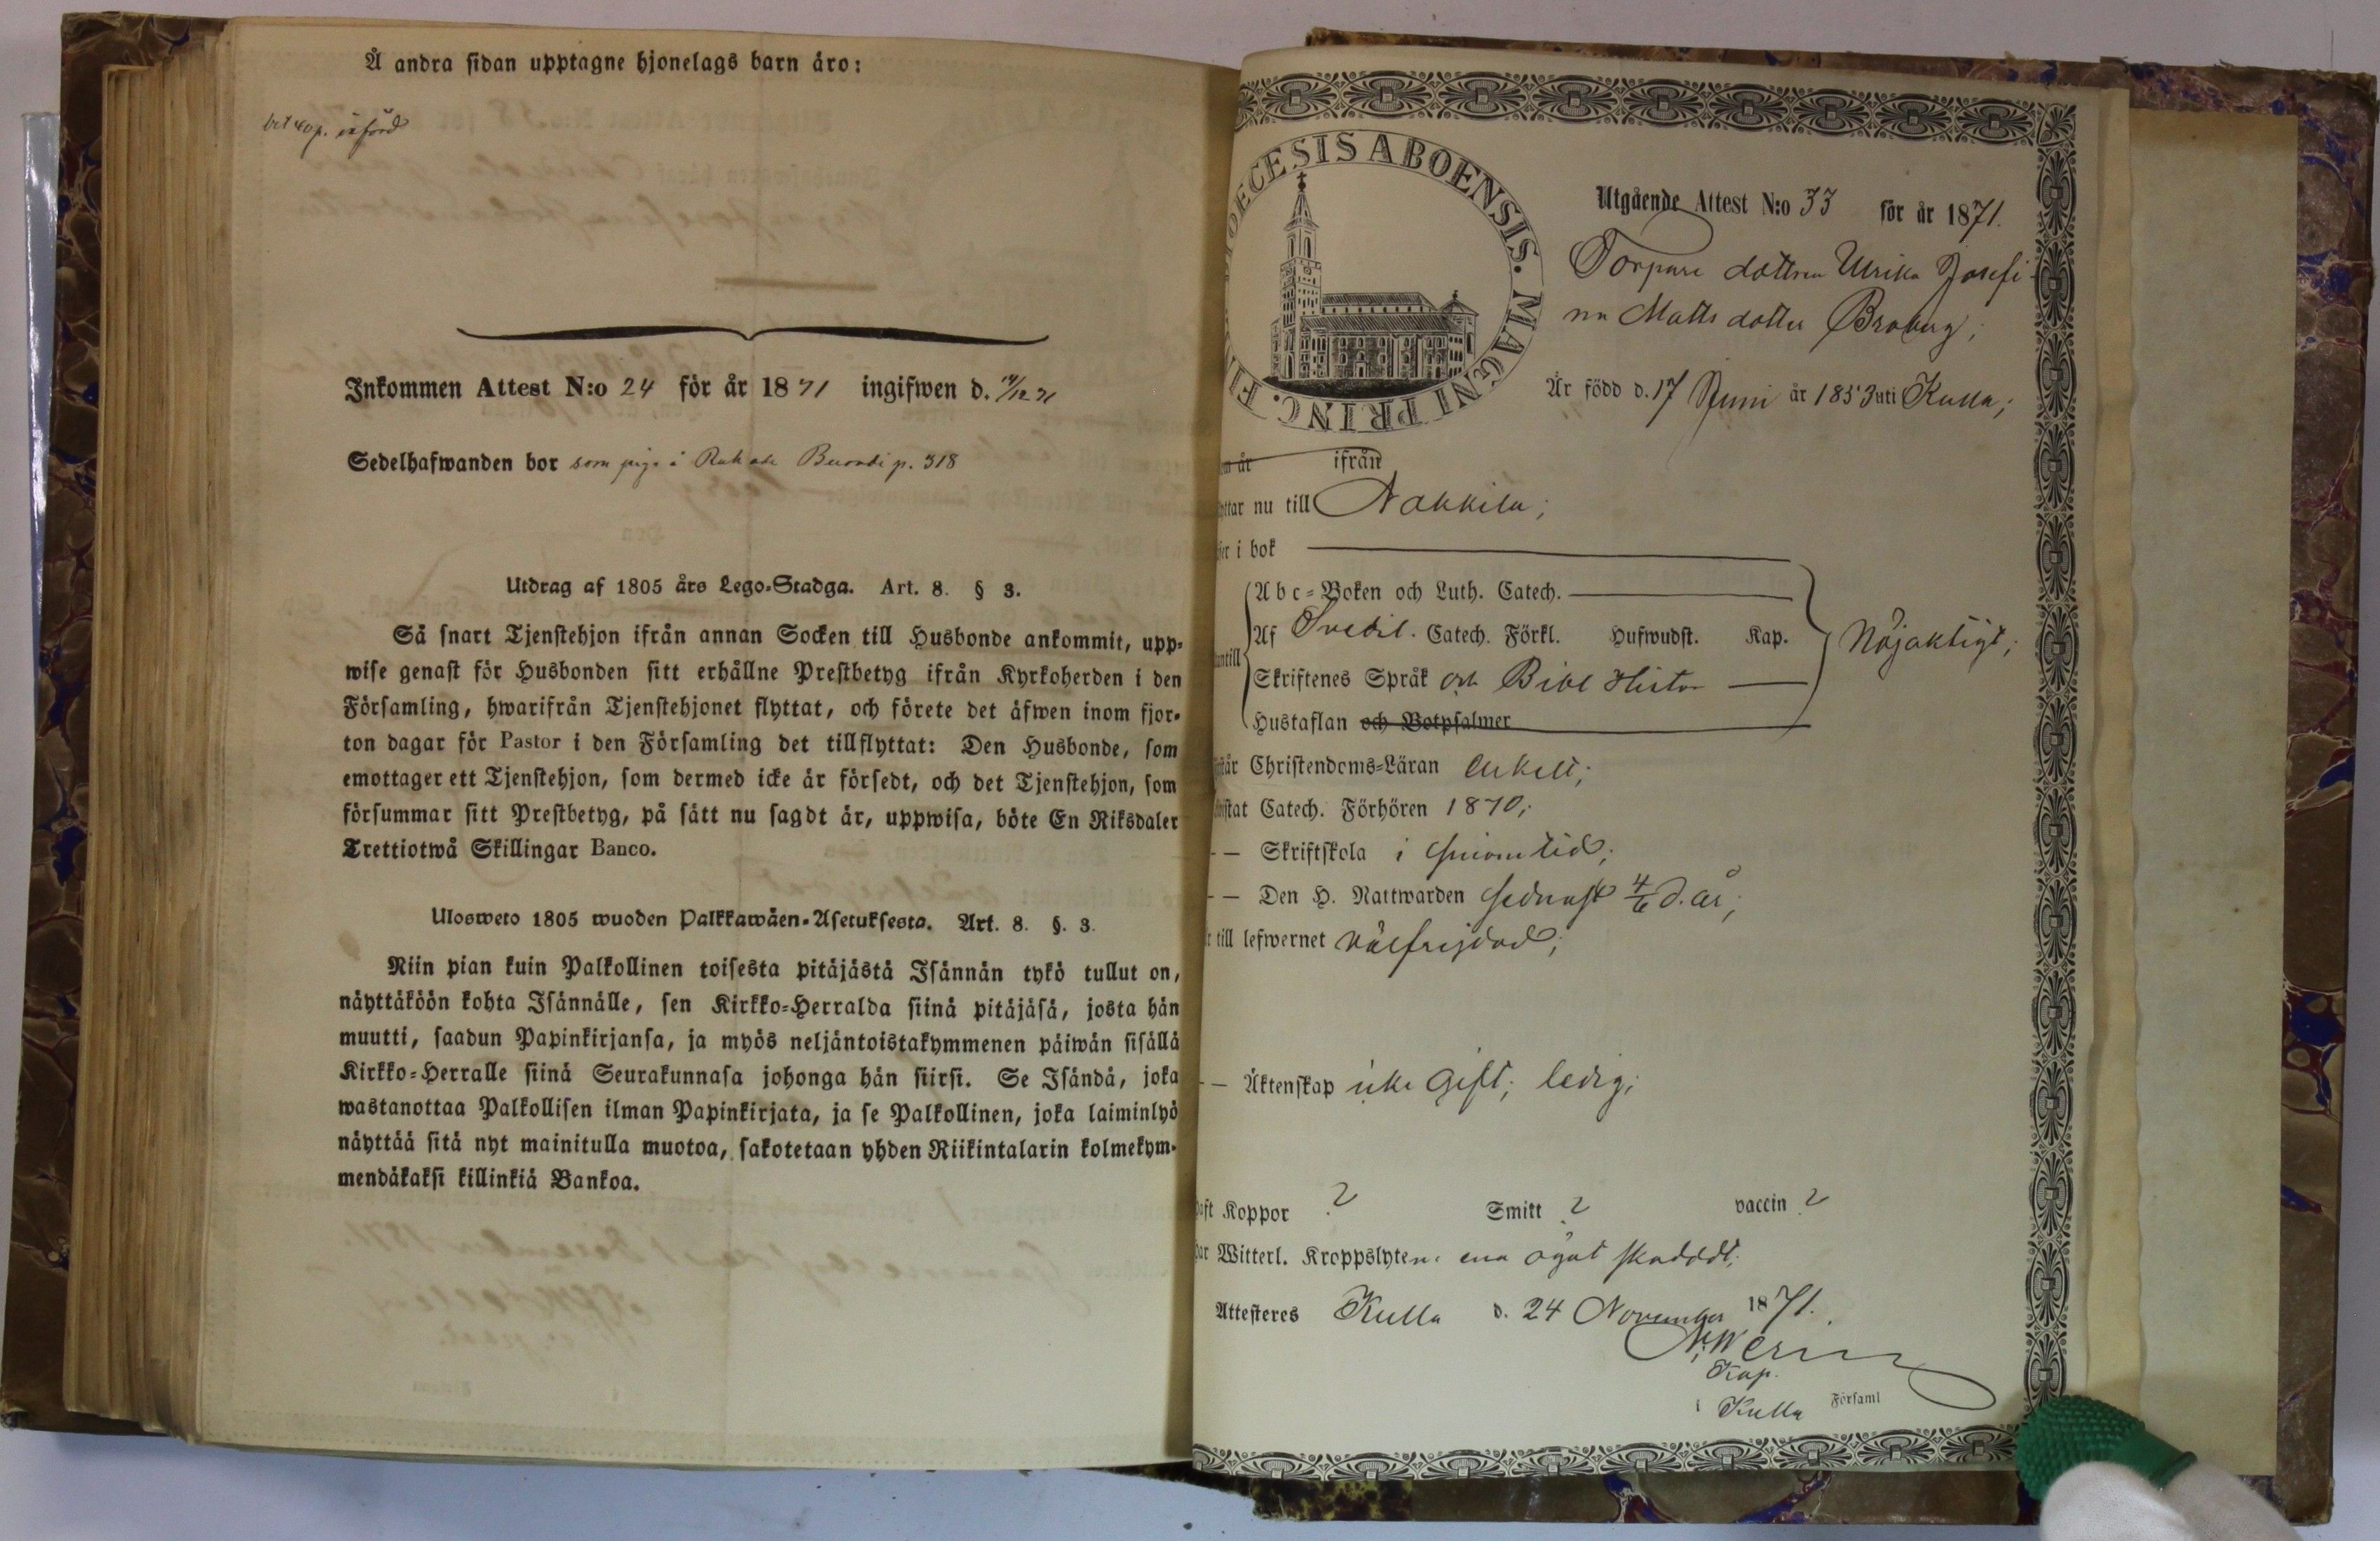 Å andra sidan upptagne hjonelags barn äro:
bet 40 p. införd
Inkommen Attest N:o 24 för år 1871 ingifwen d. 14/12 71
Sedelhafwanden bor som piga å p. 318
Utdrag af 1805 års Lego-Stadga. Art. 8. § 3.
Så snart Tjenstehjon ifrån annan Socken till Husbonde ankommit, upp-
wise genast för Husbonden sitt erhållne Prestbetyg ifrån Kyrkoherden i den
Församling, hwarifrån Tjenstehjonet flyttat, och förete det äfwen inom fjor-
ton dagar för Pastor i den Församling det tillflyttat: Den Husbonde, som
emottager ett Tjenstehjon, som dermed icke är försedt, och det Tjenstehjon, som
försummar sitt Prestbetyg, på sätt nu sagdt är, uppwisa, böte En Riksdaler
Trettiotwå Skillingar Banco.
Ulosweto 1805 wuoden Palkkawäen-Asetuksesta. Art. 8. §. 3.
Niin pian kuin Palkollinen toisesta pitäjästä Isännän tykö tullut on,
näyttäköön kohta Isännälle, sen Kirkko-Herralda siinä pitäjäsä, josta hän
muutti, saadun Papinkirjansa, ja myös neljäntoistakymmenen päiwän sisällä
Kirkko-Herralle siinä Seurakunnasa johonga hän siirsi. Se Isändä, joka
wastanottaa Palkollisen ilman Papinkirjata, ja se Palkollinen, joka laiminlyö
näyttää sitä nyt mainitulla muotoa, sakotetaan yhden Riikintalarin kolmekym-
mendäkaksi killinkiä Bankoa.
DIOECESIS ABOENSIS. MAGNI PRINC. FI
Utgående Attest N:o 33 för år 1871.
Torpare dottren Ulrika Josefi-
na Matts dotter Broberg;
Är född d. 17 Juni år 1853 uti Kulla;
m år ifrån
yttar nu till Nakkila;
ser i bok
Abc-Boken och Luth. Catech.
Af Svebil. Catech. Förkl. Hufwudst. Kap.
Nöjaktigt;
untill
Skriftenes Språk och Bibl Histor
Hustaflan och Botpsalmer
står Christendoms-Läran enkelt;
instat Catech. Förhören 1870;
- - Skriftskola i sinom tid;
- - Den H. Nattwarden sednast 4/6 d. år;
r till lefwernet välfrejdad;
- - Äktenskap icke gift; ledig;
haft Koppor ? Smitt ? vaccin ?
har Witterl. Kroppslyten: ena ögat skadadt;
Attesteres Kulla d. 24 November 1871.
Kap.
i Kulla Församl